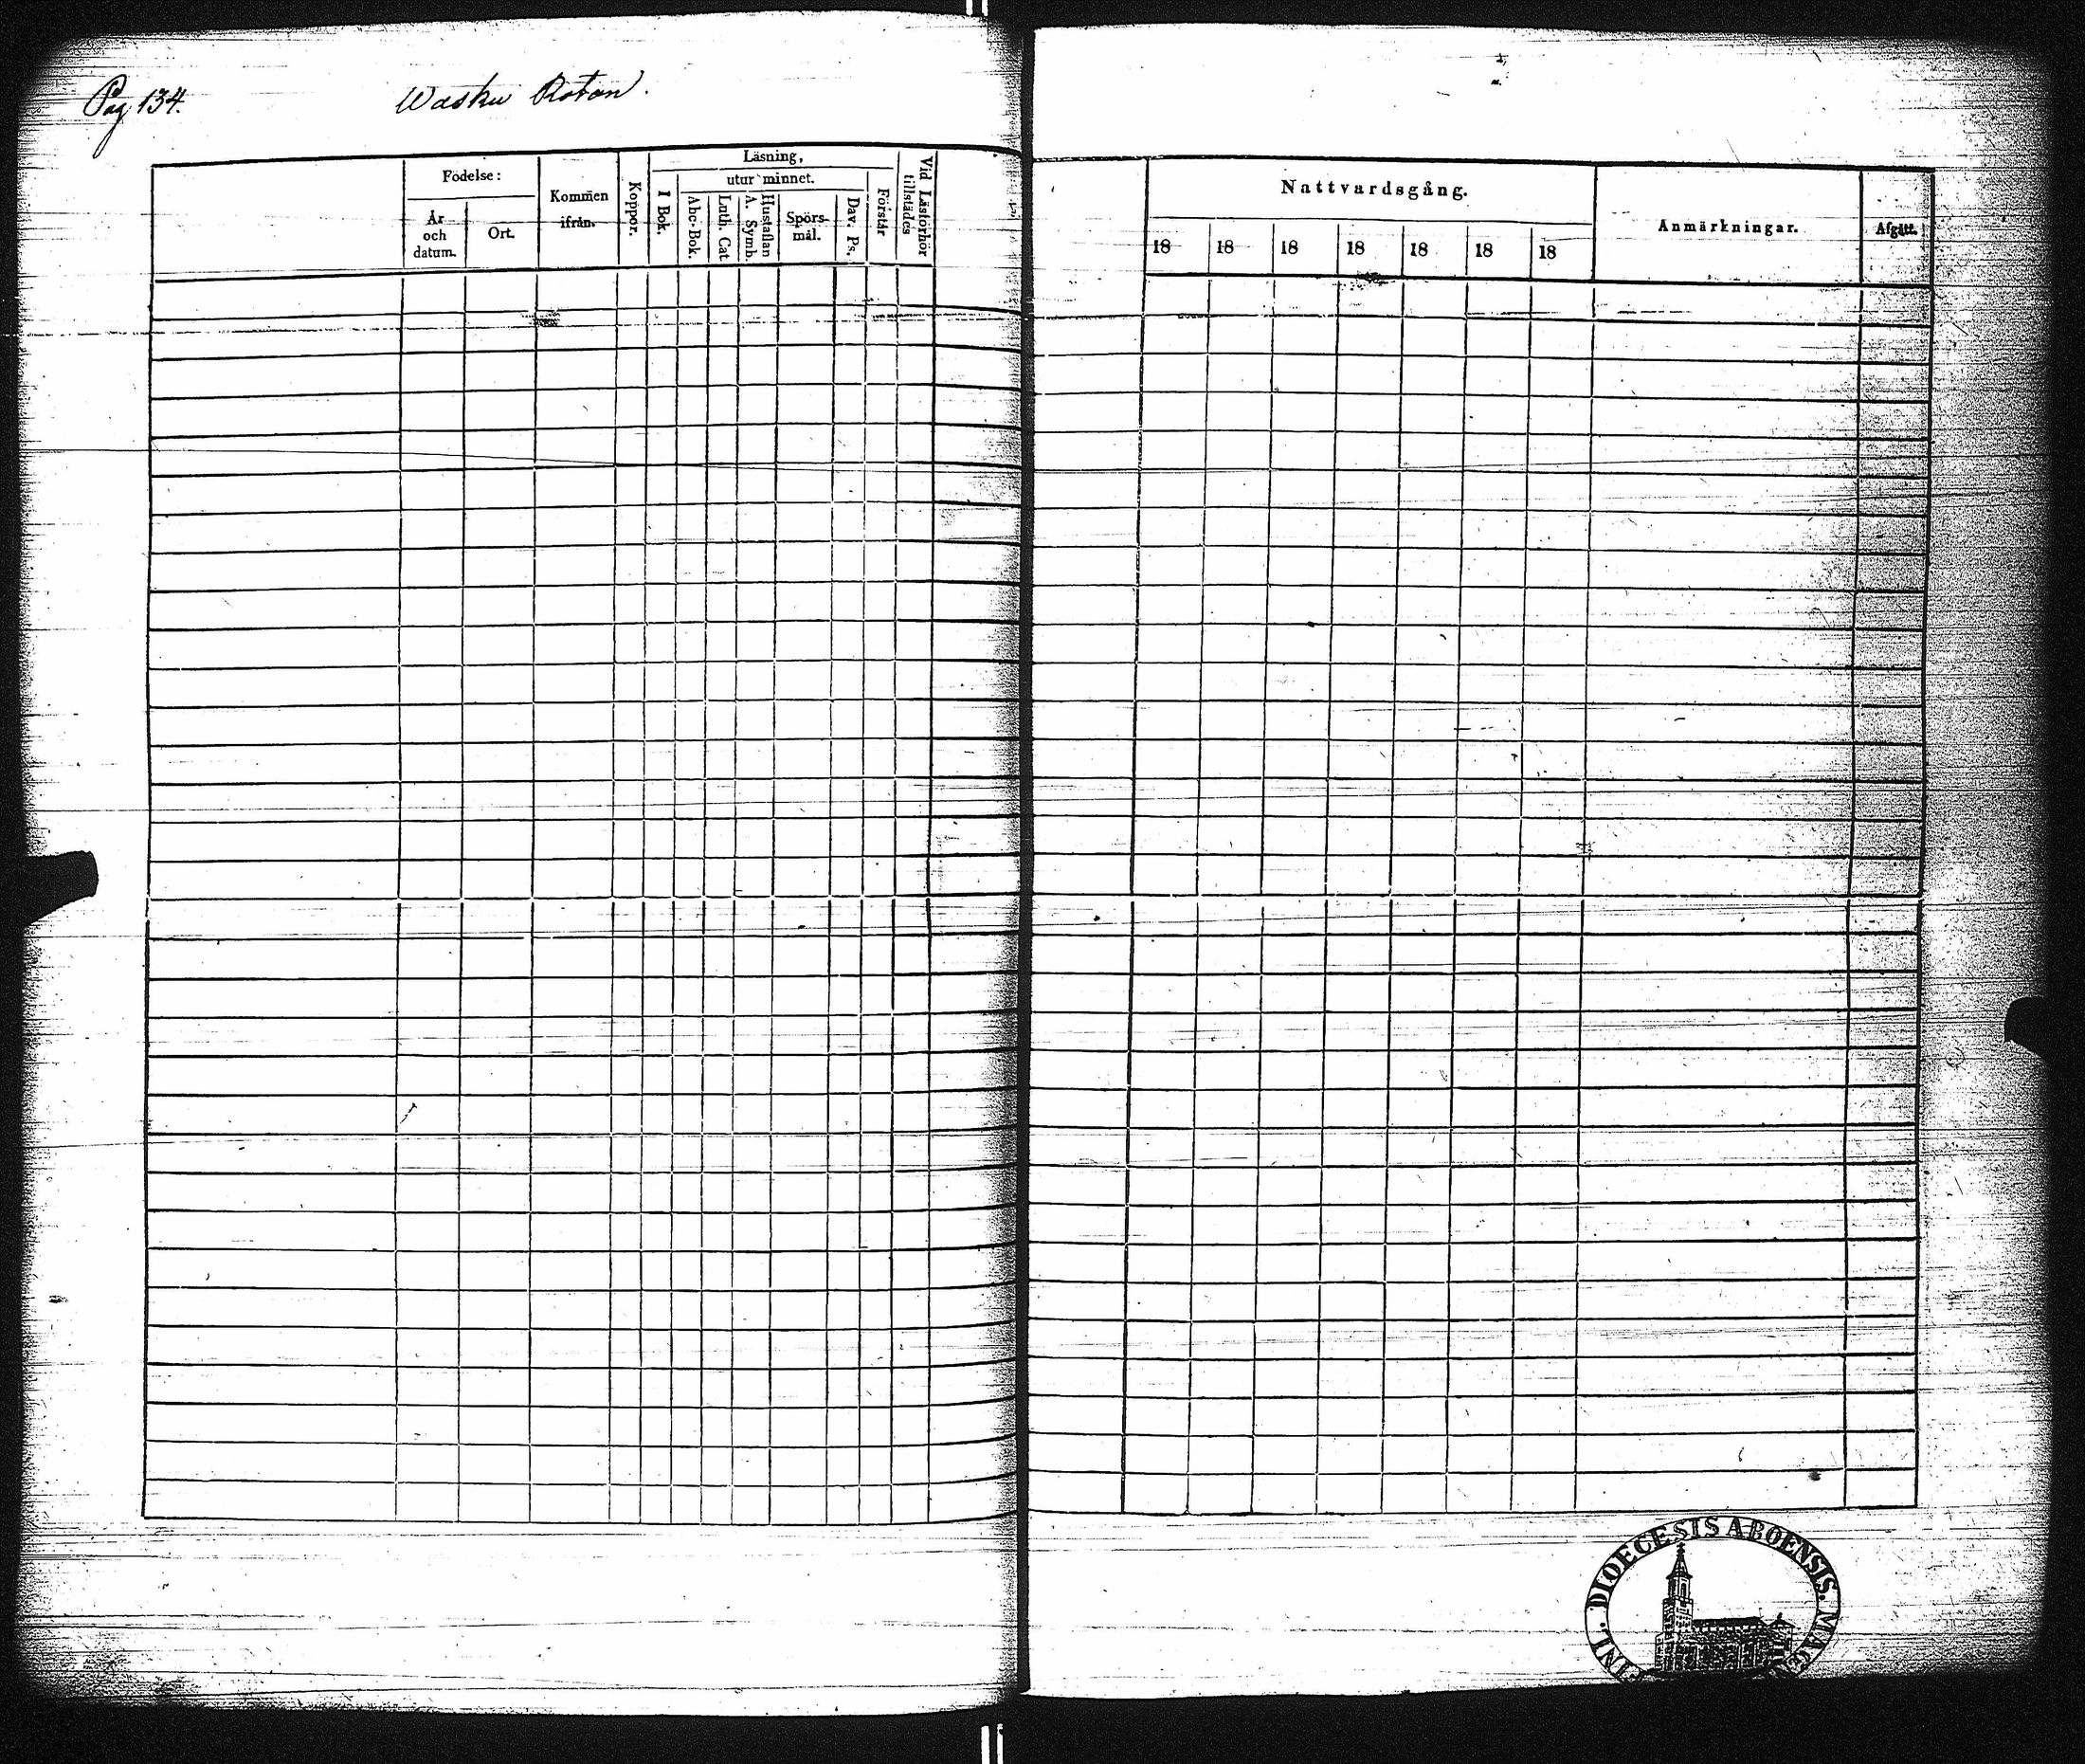 Pag 134.
Wasku Rotan.
Födelse:
År
och
datum.
Ort.
Kommen
ifrån.
Koppor.
Läsning,
I Bok.
utur minnet.
Abc-Bok.
Luth. Cat
Hustaflan
A. Symb.
Spörs-
mål.
Dav. Ps.
Förstår
Vid Läsförhör
tillstädes
Nattvardsgång.
18 18 18 18 18 18 18
Anmärkningar.
Afgått.
DIOECESIS ABOENSIS.